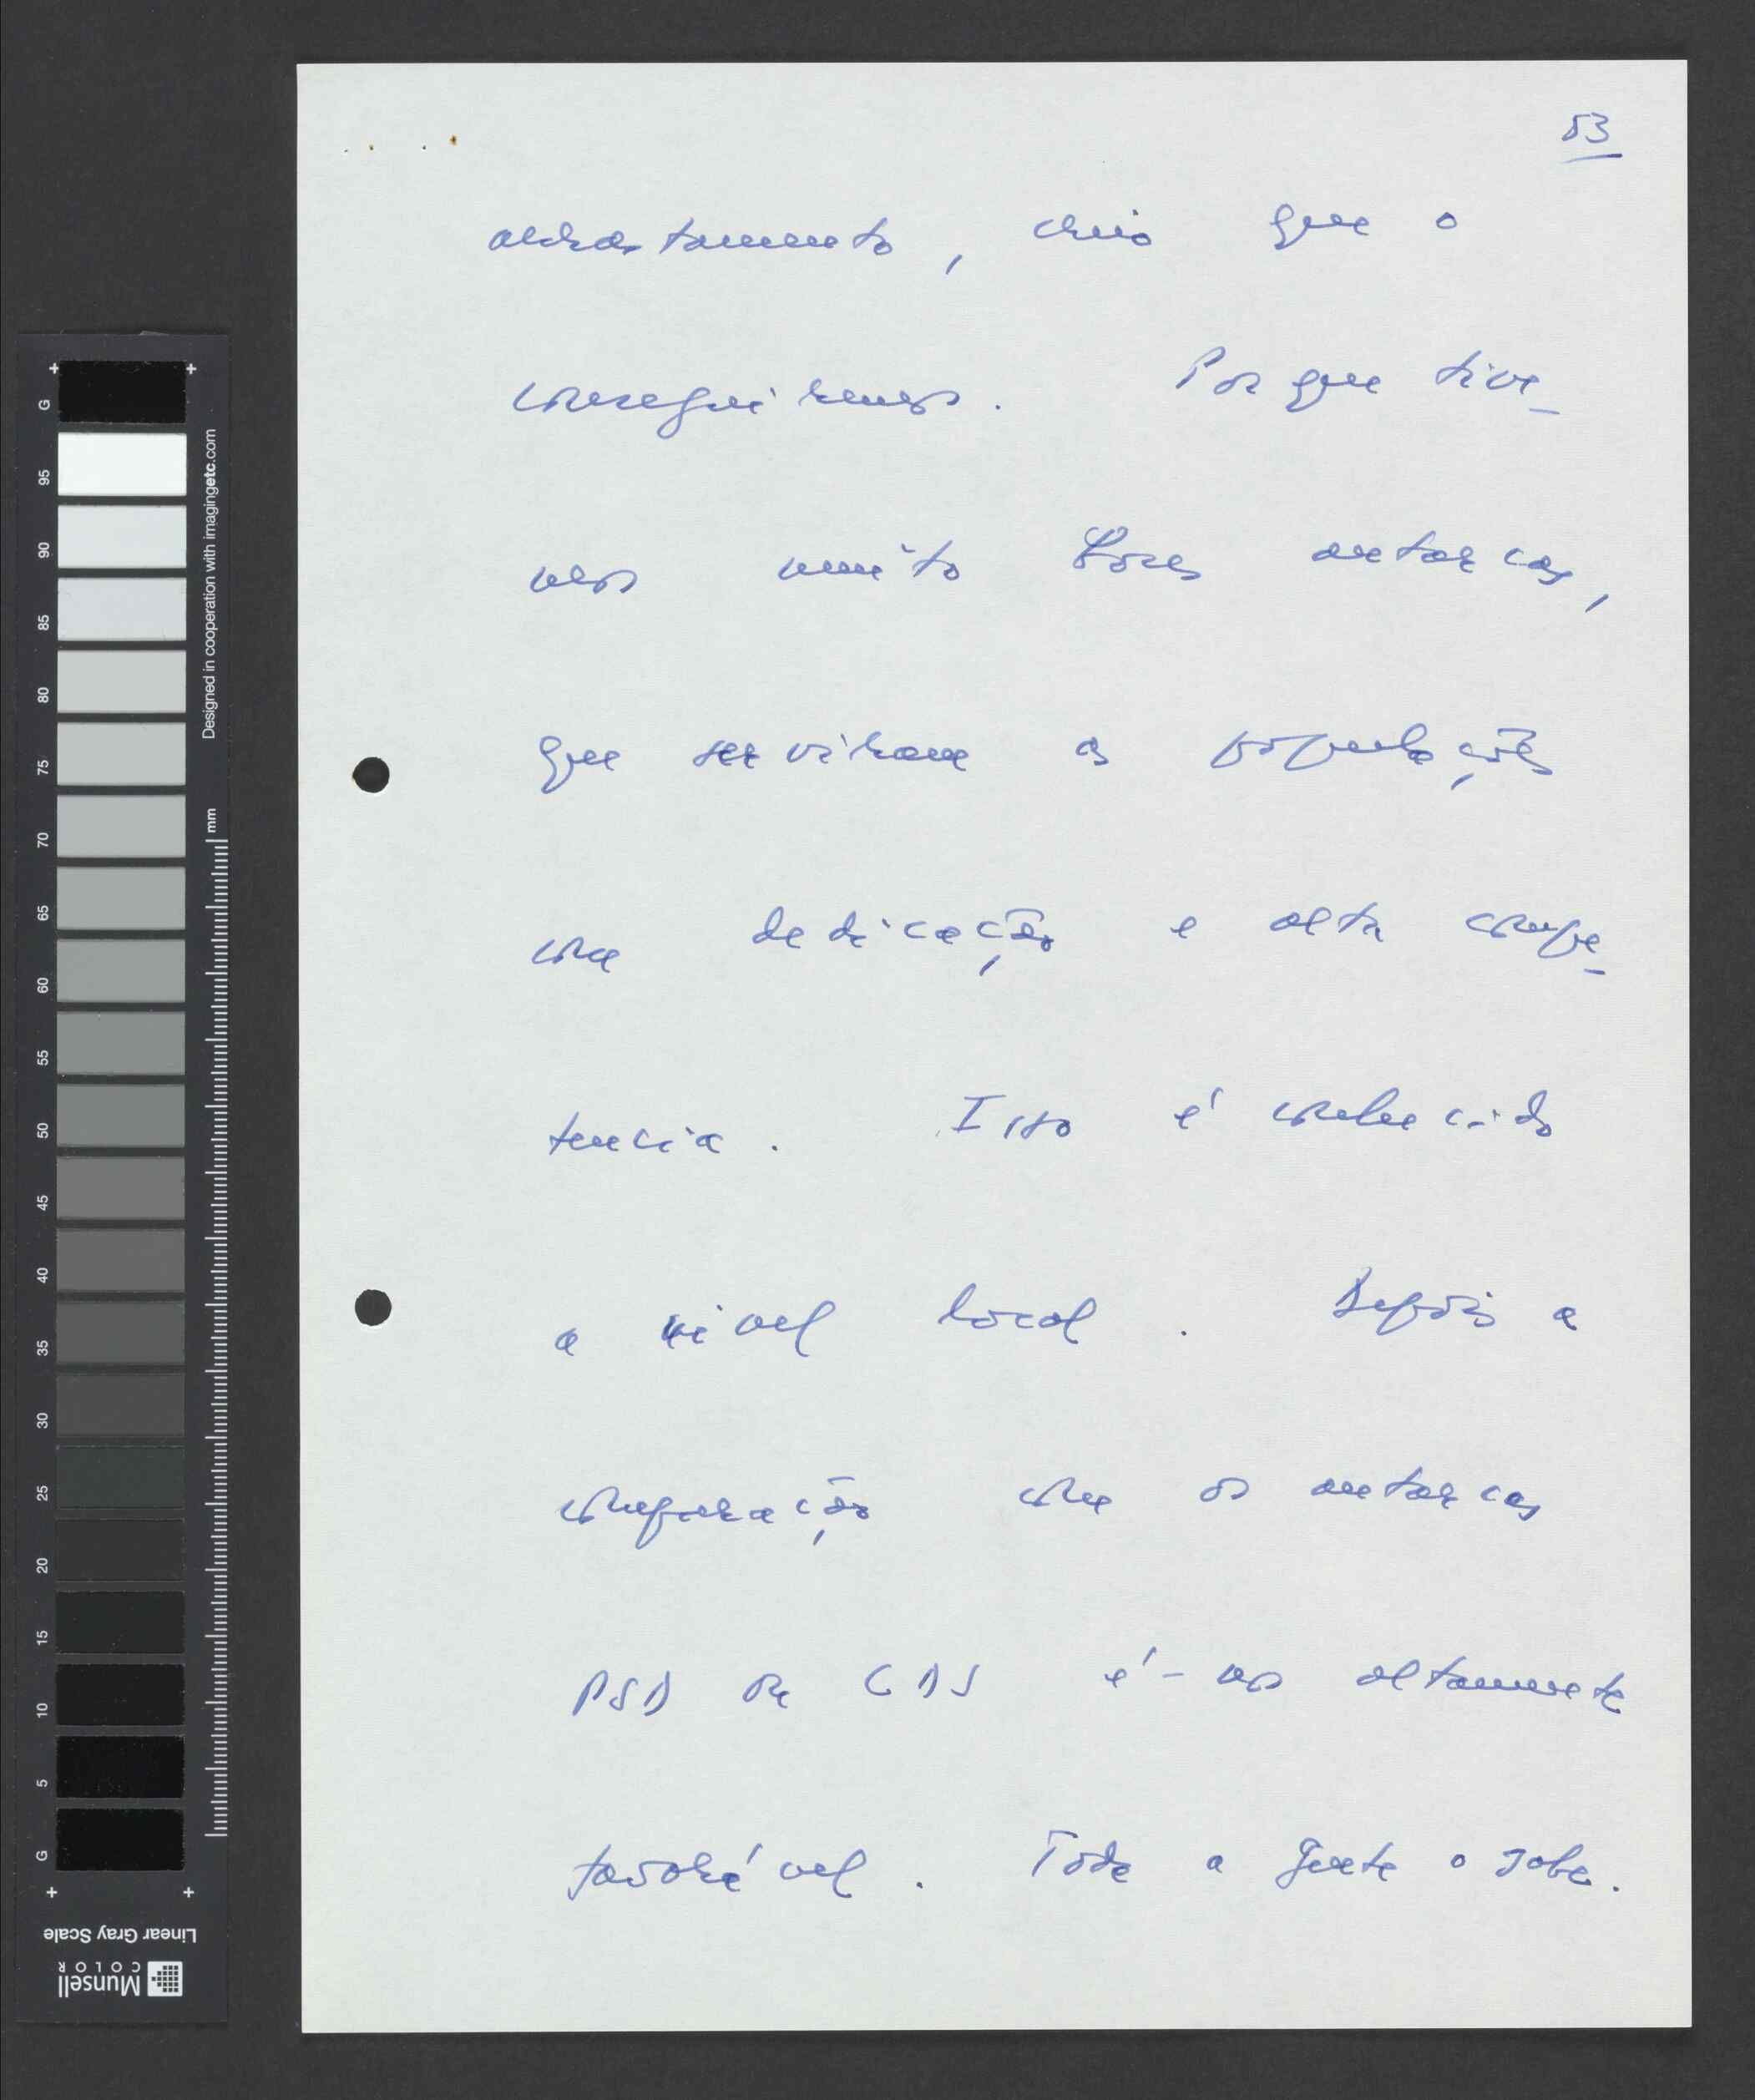 53
arrastamento, creio que o
conseguiremos. Porque tive-
mos muito bons autarcas,
que serviram as populações
com dedicação e alta compe-
tencia. Isso é conhecido
a nivel local. Depois a
comparação com os autarcas
PSD ou CDS é-nos altamente
favorável. Toda a gente o sabe.
G
95
90
85
80
75
70
65
60
55
50
45
40
35
30
25
20
15
10
5
G
Designed in cooperation with imagingetc.com
mm
Linear Gray Scale
Munsell
COLOR